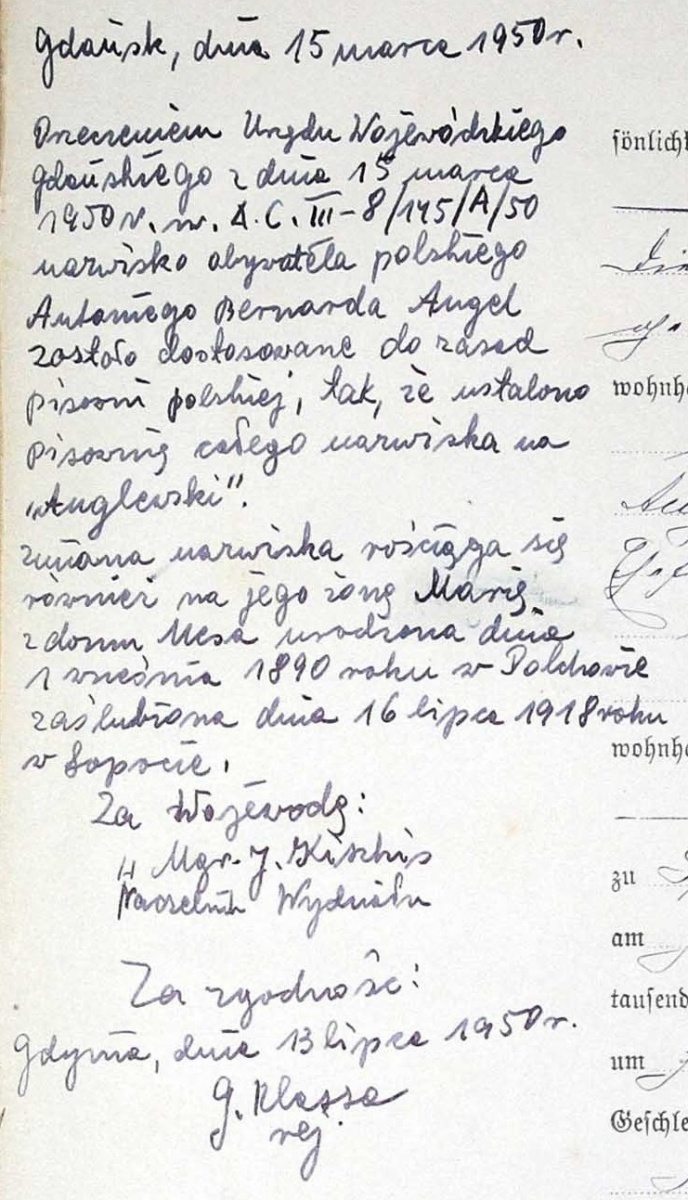 Gdańsk, dnia 15 marca 1950 r.
Orzeczeniem Urzędu Wojewódzkiego
Gdańskiego z dnia 15 marca
1950 r. nr. A.C. III-8/145/A/50
nazwisko obywatela polskiego
Antoniego Bernarda Angel
zostało dostosowane do zasad
pisowni polskiej, tak, że ustalono
pisownię całego nazwiska na
„Anglewski".
Zmiana nazwiska rościąga się
również na jego żonę Marię
z domu Mesa urodzona dnia
1 września 1890 roku w Połchowie
zaślubiona dnia 16 lipca 1918 roku
w Sopocie.
Za Wojewodę:
Mgr. J.
Naczelnik Wydziału
Za zgodność:
Gdynia, dnia 13 lipca 1950 r.
G. Klassa
rej.
sönlichk
wohnha
wohnha
zu
am
tausend
um
Geschle